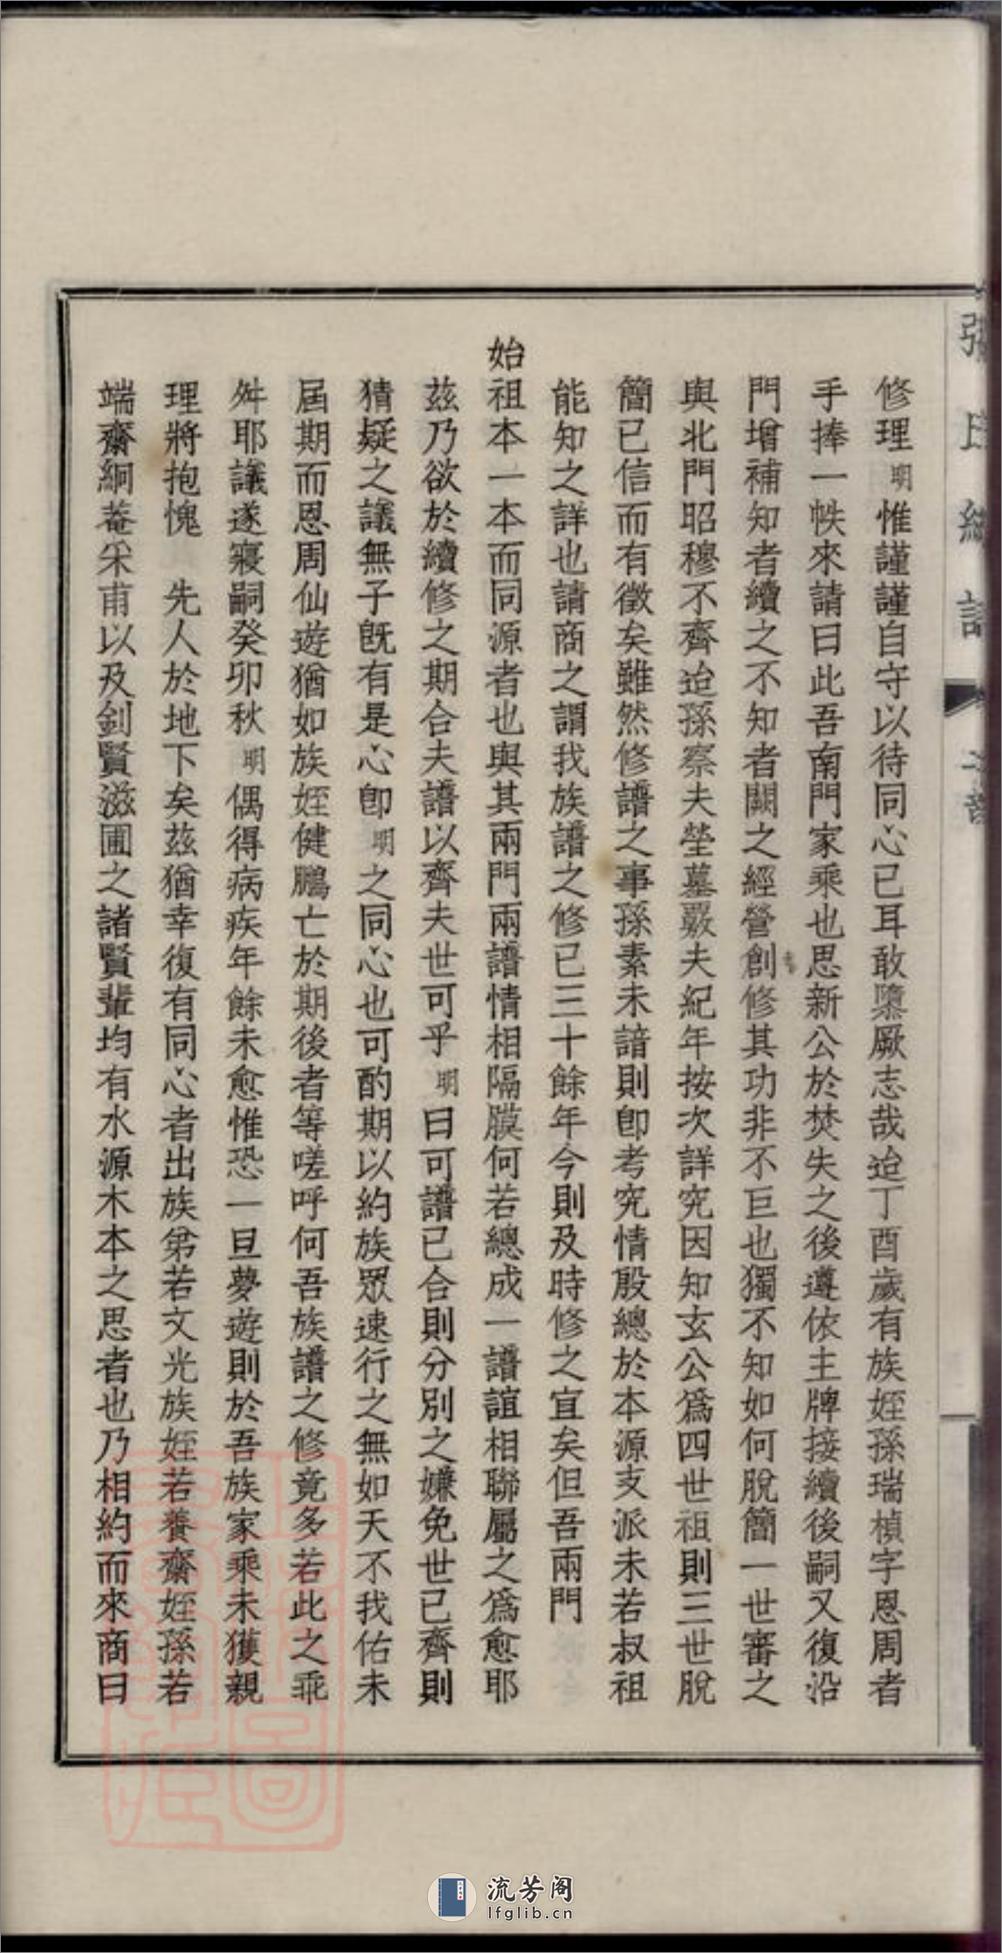 修理明惟謹謹自守以待同心已耳敢隳厥志哉迨丁酉歲有族姪孫瑞楨字恩周者
手捧一帙來請曰此吾南門家乘也思新公於焚失之後遵依主牌接續後嗣又復沿
門增補知者續之不知者闕之經營創修其功非不巨也獨不知如何脫簡一世審之
與北門昭穆不齊迨孫察夫塋墓覈夫紀年按次詳究因知玄公爲四世祖則三世脫
簡已信而有徵矣雖然修譜之事孫素未諳則卽考究情殷總於本源支派未若叔祖
能知之詳也請商之謂我族譜之修已三十餘年今則及時修之宜矣但吾兩門
始祖本一本而同源者也與其兩門兩譜情相隔膜何若總成一譜誼相聯屬之爲愈耶
茲乃欲於續修之期合夫譜以齊夫世可乎明曰可譜已合則分別之嫌免世已齊則
猜疑之議無子旣有是心卽明之同心也可酌期以約族眾速行之無如天不我佑未
屆期而恩周仙遊猶如族姪健鵬亡於期後者等嗟呼何吾族譜之修竟多若此之乖
舛耶議遂寢嗣癸卯秋明偶得病疾年餘未愈惟恐一旦夢遊則於吾族家乘未獲親
理將抱愧 先人於地下矣茲猶幸復有同心者出族弟若文光族姪若養齋姪孫若
端齋絅菴采甫以及釗賢滋圃之諸賢輩均有水源木本之思者也乃相約而來商曰
張氏總譜
流芳阁
lfglib.cn